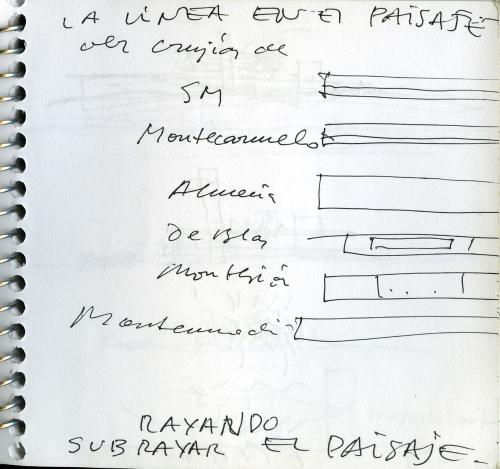 LA LíNEA EN El PAiSAJE
ver crujía de
SM
Montecarmelo
Almería
De Blas
Montesión
Montenmedio
RAYANDO
SUBRAYAR EL PAiSAJE.